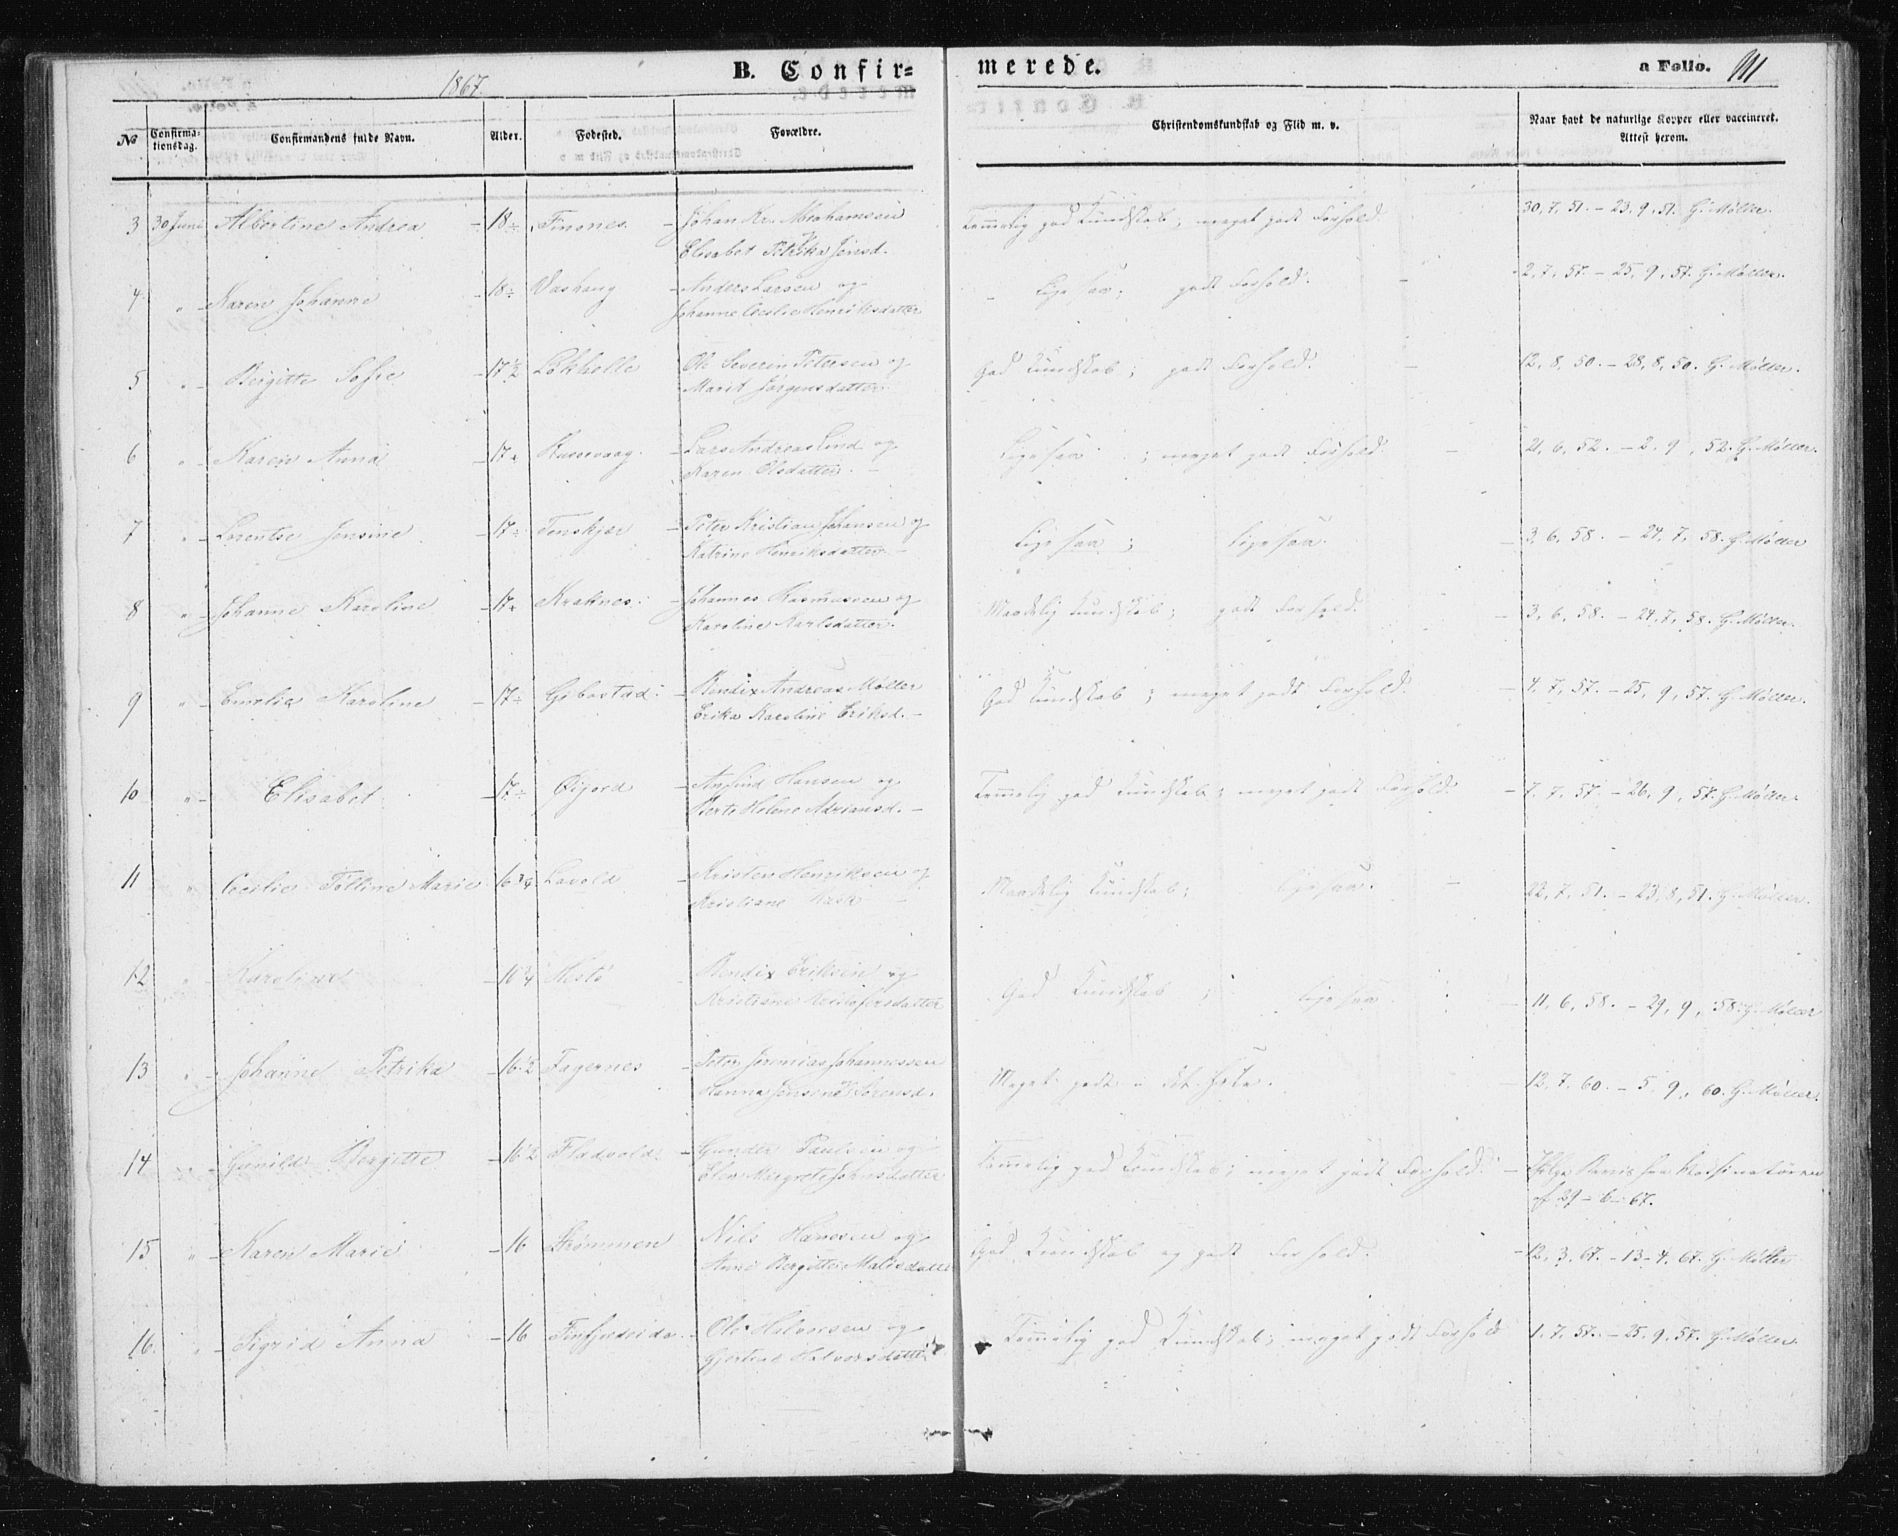 1867.
B. Confir=
merede.
a Folio. 111
No
Confirma-
tionsdag.
Confirmandens fulde Navn.
Alder.
Fødested.
Forældre.
Christendomskundskab og Flid m. v.
Naar havt de naturlige Kopper eller vaccineret.
Attest herom.
3 30 Juni Albertine Andrea - 18 Finsnes. - Johan Kr. Abrahamsen Temmelig god Kundskab; meget godt Forhold. 30, 7, 51. - 23, 9, 51. G. Møller.
Elisabet Petrika Jensd.
4 " Karen Johanne - 18 - Anders Larsen og Ligesaa; godt Forhold. - 2, 7, 57. - 25, 9, 57. G. Møller.
Johanne Cecilie Henriksdatter
5 " - Bergitte Sofie - 17½ Lökhelle Ole Severin Petersen og God Kundskab; godt Forhold. - 12, 8, 50. - 28, 8, 50. G. Møller.
- Marit Jørgensdatter
6 " - Karen Anna - 17 - Lars Andreas Lind og Ligesaa; meget godt Forhold. - 21, 6, 52. - 2, 9, 52. G. Møller.
Karen Olsdatter. -
7 " - Lorentse Jensine - 17 Tenskjær - Peter Kristian Johansen og Ligesaa; Ligesaa. - 3, 6, 58. - 24, 7, 58. G. Møller
Katrine Henriksdatter -
8 " - Johanne Karoline - 17 Kraknes - Johannes Rasmussen og Maadelig Kundskab; godt Forhold. - 3, 6, 58. - 24, 7, 58. G. Møller.
Karoline Karlsdatter.
9 " - Emelia Karoline - 17 Gibostad - Bendix Andreas Møller God Kundskab; meget godt Forhold. - 4, 7, 57. - 25, 9, 57. G. Møller.
Erika Karoline Eriksd. -
10 " - Elisabet - 17 Øijord - Hansen og Temmelig god Kundskab; meget godt Forhold - 7, 7, 57. - 26, 9, 57. G. Møller.
Berte Helene Adriansd. -
11 " Cecilie Marie 16¾ Lavold - Kristen Henriksen og Maadelig Kundskab; ligesaa. - 22, 7, 51. - 23, 8, 51. G. Møller.
Kristiane
12 " - Karoline - 16¾ - Bendix Eriksen og God Kundskab; ligesaa - 11, 6, 58. - 29, 9, 58. G. Møller
Kristiane Kristofersdatter
13 " - Johanne Petrika - 16½ Fagernes - Peter Jeremias Johannessen Meget godt i det Hele. - 12, 7, 60. - 5, 9, 60. G. Møller.
Hanna Jensine Sörensd.
14 " - Gunild Bergitte - 16½ Fladvold - Gunder Paulsen og Temmelig god Kundskab; meget godt Forhold. -
Elen Margrete Johnsdatter af 29 - 6 - 67.
15 " - Karen Marie - 16 Strømmen Nils Hansen og God Kundskab og godt Forhold. - 12, 3, 67. - 13 - 4, 67. G. Møller
Anne Bergitte
16. " - Sigrid Anna - 16 Finfjordeide. - Ole Halvorsen og Temmelig god Kundskab; meget godt Forhold 1, 7, 57. - 25, 9, 57. G. Møller
Gjertine Halvorsdatter